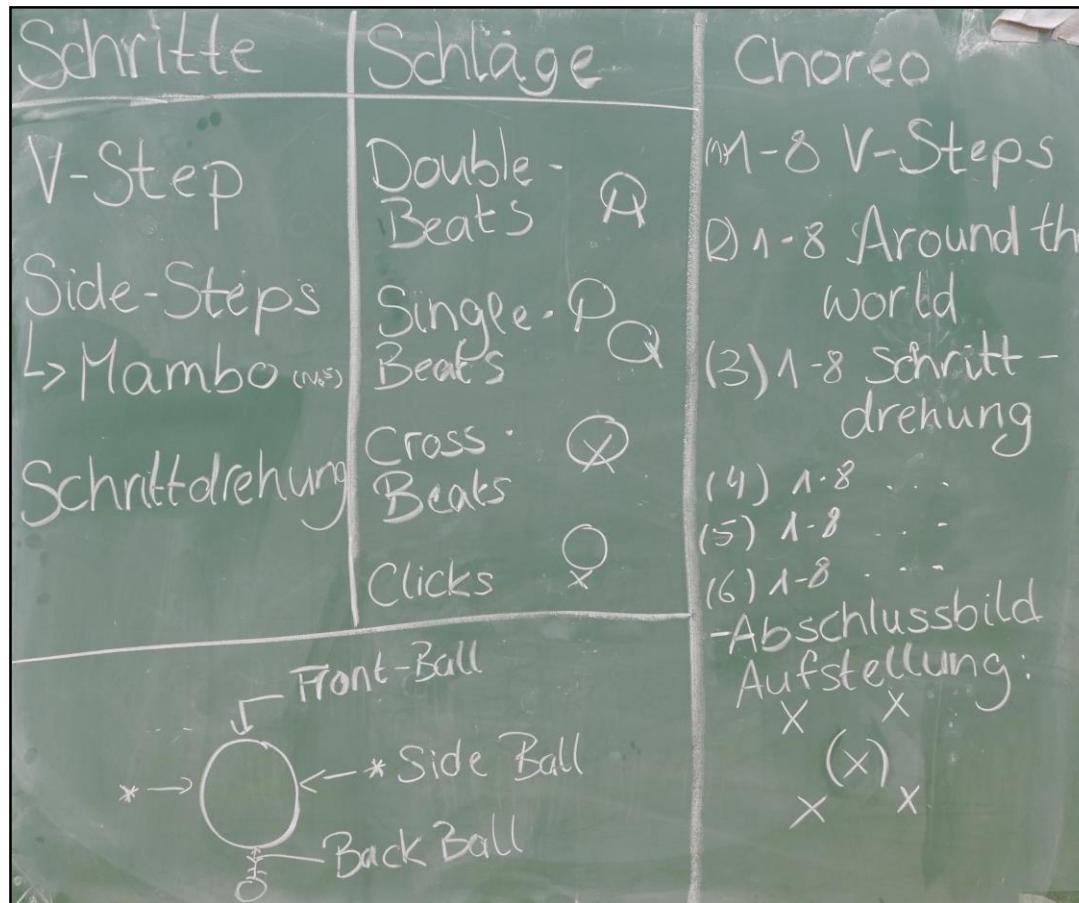 Schritte
V-Step
Side-Steps
↳ Mambo (No5)
Schrittdrehung
Schläge
Double-
Beats
Single-
Beats
Cross-
Beats
Clicks
Front-Ball
* Side Ball
*
Back Ball
Choreo
(1) 1-8 V-Steps
(2) 1-8 Around th
world
(3) 1-8 Schritt-
drehung
(4) 1-8 ...
(5) 1-8 ...
(6) 1-8 ...
-Abschlussbild
Aufstellung:
X X
(X)
X X